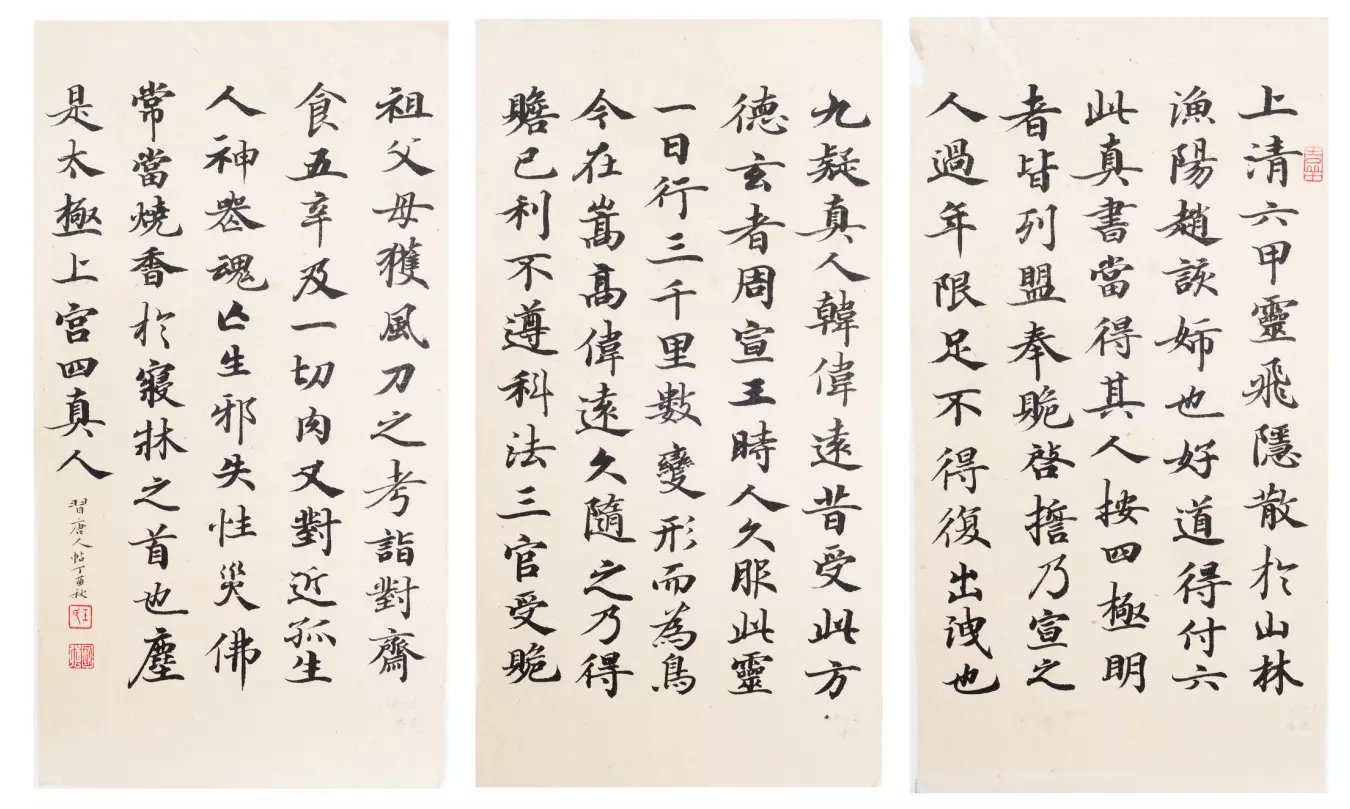 上清六甲靈飛隱散於山林
漁陽趙該姊也好道得付六
此真書當得其人按四極明
者皆列盟奉䞈啓誓乃宣之
人過年限足不得復出洩也
九疑真人韓偉遠昔受此方
德玄者周宣王時人久服此靈
一日行三千里數變形而為鳥
今在嵩高偉遠久隨之乃得
贍已利不遵科法三官受䞈
祖父母獲風刀之考詣對齋
食五辛及一切肉又對近孤生
人神喪魂亡生邪失性災佛
常當燒香於寢牀之首也塵
是太極上宫四真人
習唐人帖丁酉秋